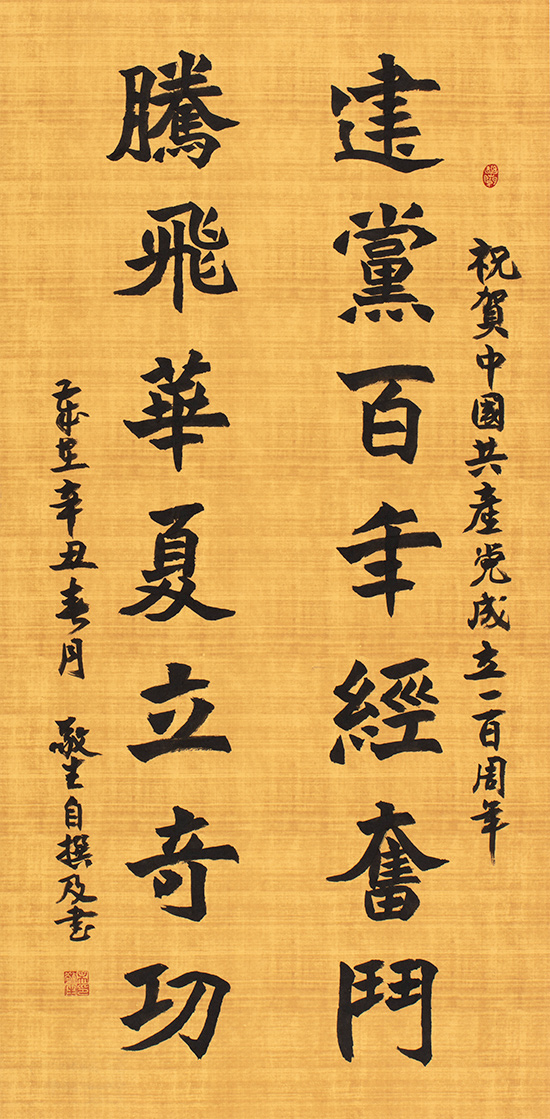 祝賀中國共產党成立一百周年
建黨百年經奮鬥
騰飛華夏立奇功
歲至辛丑春月 敬生自撰及書